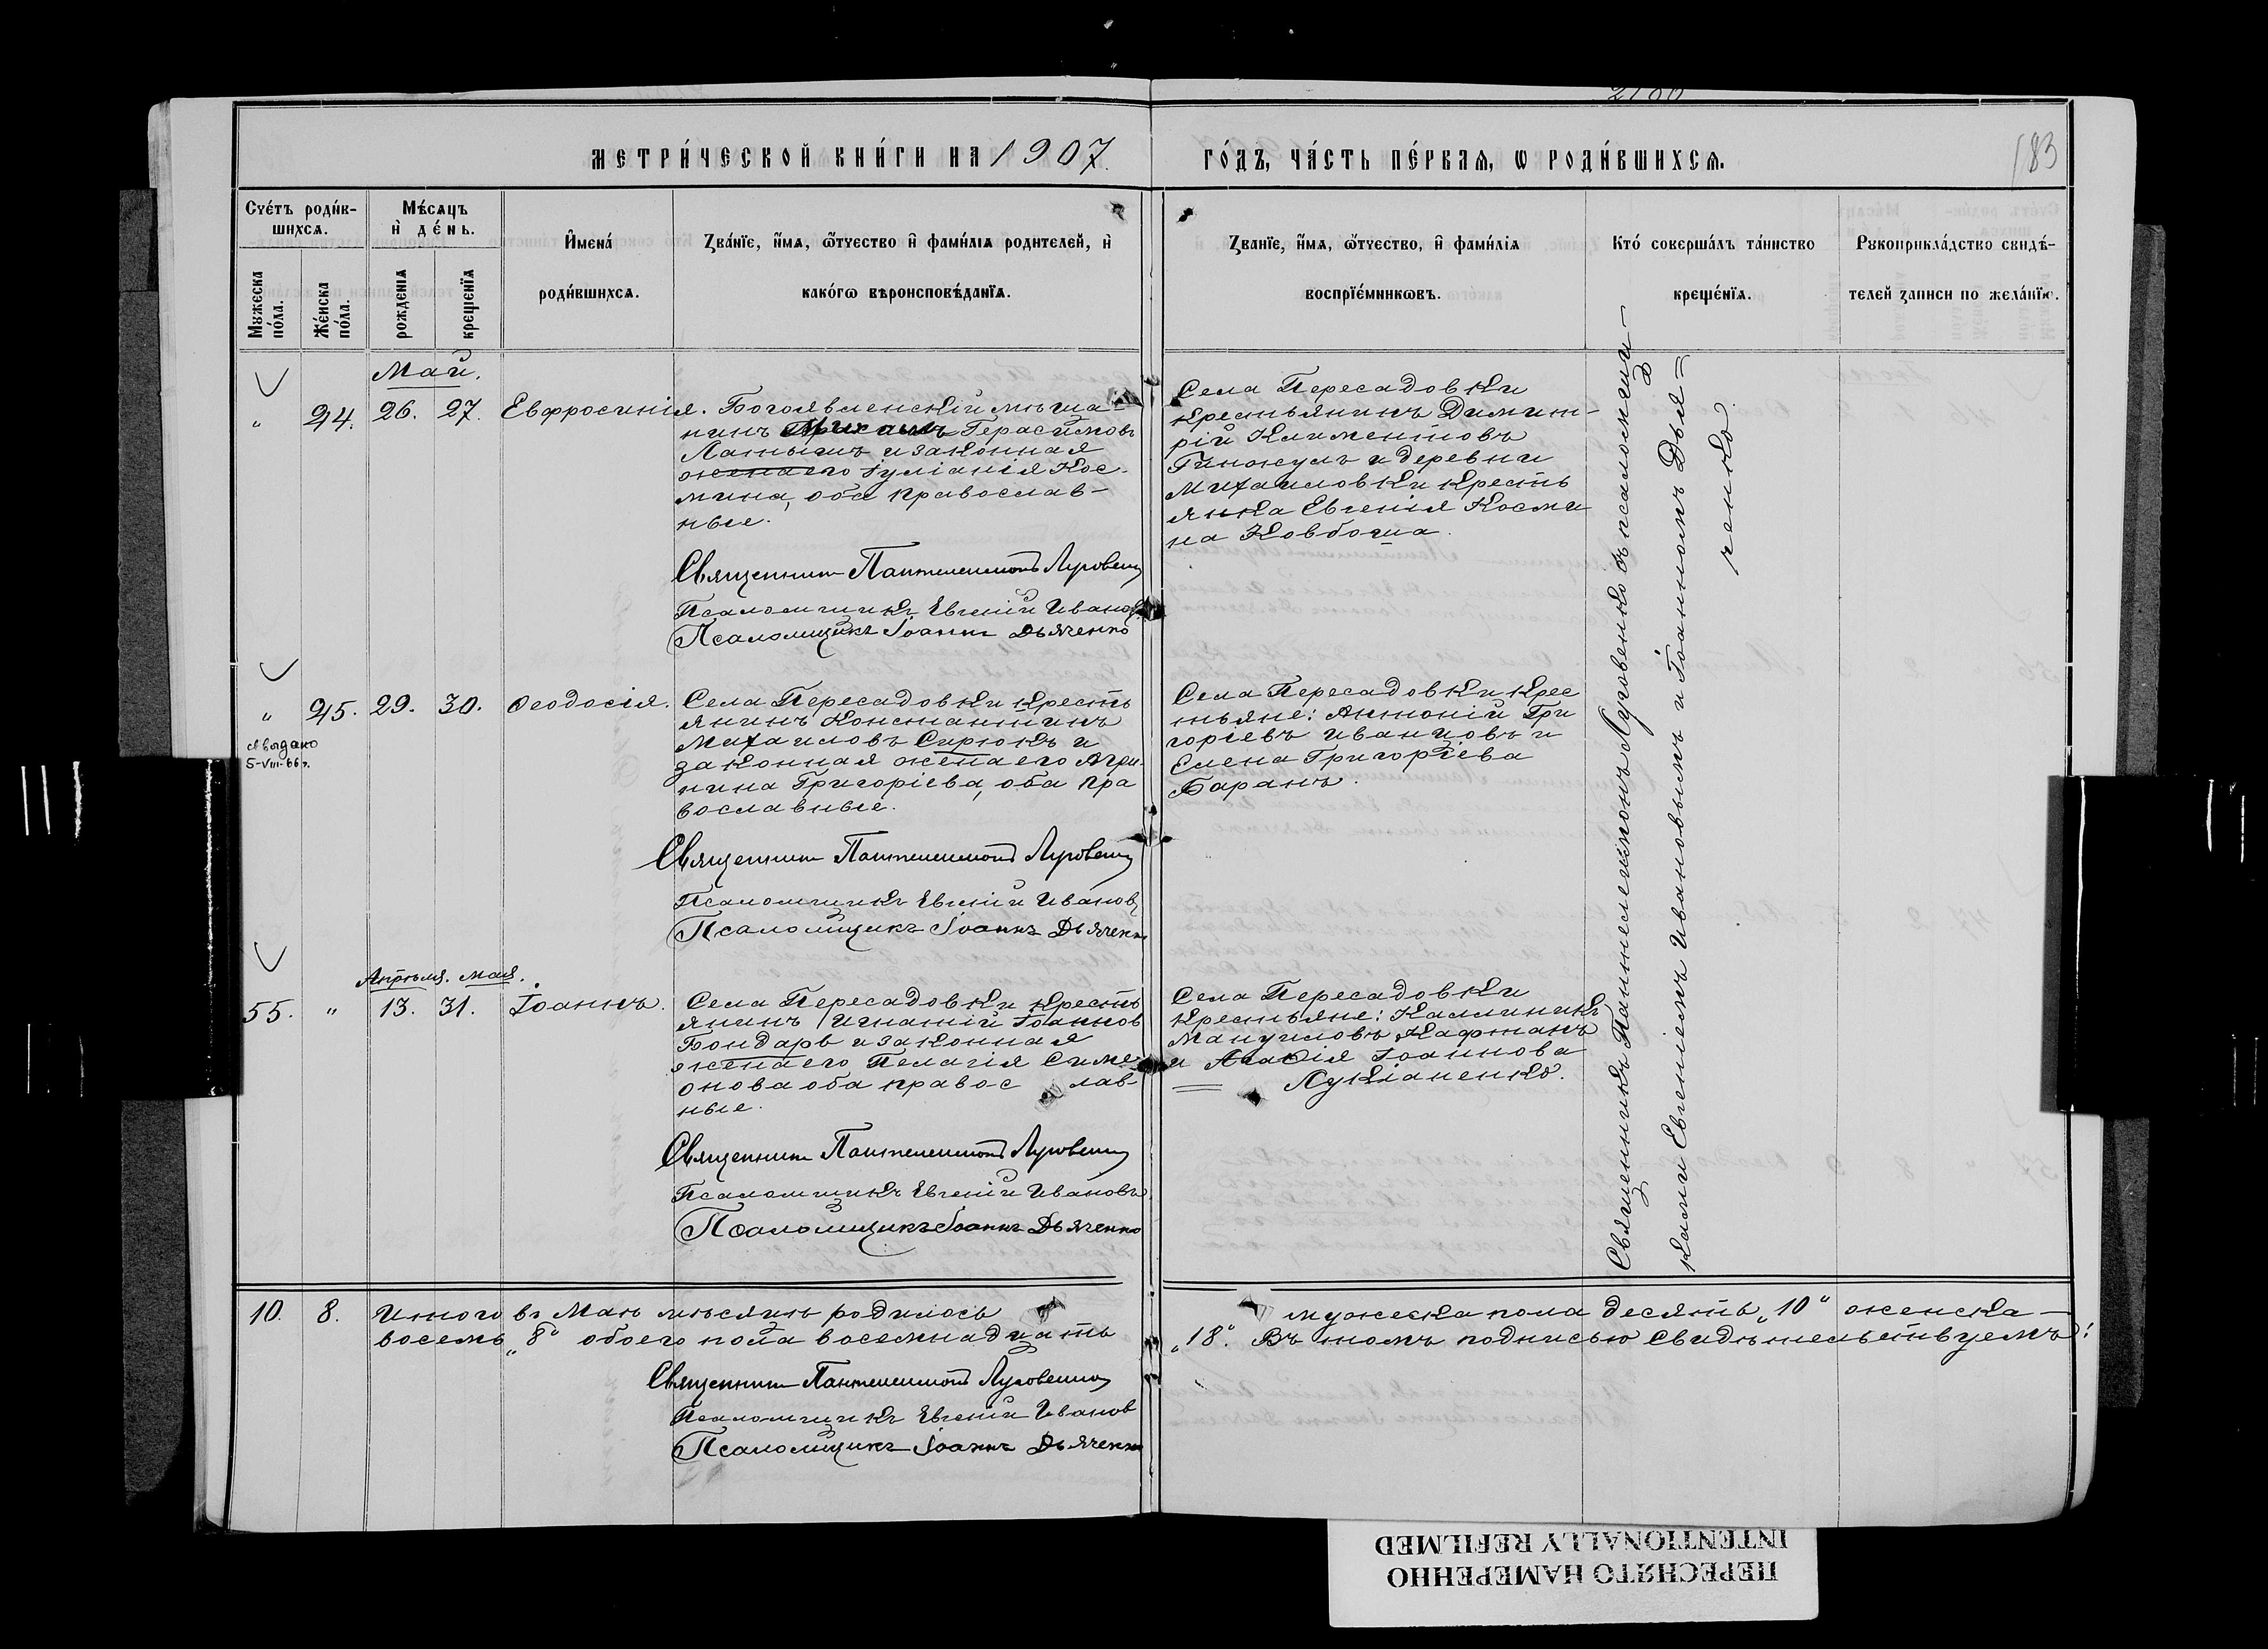 2180
183
МЕТРИ́ЧЕСКОЙ КНИ́ГИ НА 1907.
ГО́ДЪ, ЧА́СТЬ ПЕ́РВАѦ, Ѡ РОДИ́ВШИХСѦ.
Счéтъ роди́в-
шихсѧ.
Мꙋжеска
по́ла.
Же́нска
по́ла.
Мѣ́сѧцъ
и҆ де́нь.
рожденїѧ
крещенїѧ
И҆мена́
роди́вшихсѧ.
Ꙁва́нїе, и҆́мѧ, ѻ҆́тчество и҆ фами́лїѧ родителей, и҆
како́гѡ вѣроисповѣ́данїѧ.
Ꙁванїе, и҆́мѧ, ѻ҆́тчество, и҆ фами́лїѧ
воспрїе́мникѡвъ.
Кто́ соверша́лъ та́инство
креще́нїѧ.
Рꙋкоприкла́дство свидѣ́-
телей ꙁаписи по жела́нїю.
Май.
"
94.
26.
27.
Евфросинія.
Богоявленскій мѣща-
нинъ Герасимовъ
Латышъ и законная
жена его Іуліанія Кос-
мина, оба православ-
ные.
Священникъ Пантелеимонъ Луговенко
Псаломщикъ Евгеній Ивановъ
Псаломщикъ Іоаннъ Дьяченко
Села Пересадовки
крестьянинъ Димит-
рій Климентовъ
Гинжулъ и деревни
Михайловки кресть
янка Евгенія Косми
на Ковбоша.
"
95.
29.
30.
Ѳеодосія.
выдано
5-VIII-66 г.
Села Пересадовки кресть
янинъ Константинъ
Михаиловъ Сирюкъ и
законная жена его Ири-
нина Григоріева, оба пра
вославные.
Священникъ Пантелеимонъ Луговенко
Псаломщикъ Евгеній Ивановъ
Псаломщикъ Іоаннъ Дьяченко
Села Пересадовки крес
тьяне: Антоній Гри
горіевъ Иванцовъ и
Елена Григоріева
Баранъ.
Апрѣля. Мая.
55.
"
13.
31.
Іоаннъ.
Села Пересадовки кресть
янинъ Игнатій Іоанновъ
Бондарь и законная
жена его Пелагія Симе
онова оба православ-
ные.
Священникъ Пантелеимонъ Луговенко
Псаломщикъ Евгеній Ивановъ
Псаломщикъ Іоаннъ Дьяченко
Села Пересадовки
крестьяне: Каллиникъ
Мануиловъ Кафтанъ
и Агафія Іоаннова
Лукіаненко.
Священникъ Пантелеимонъ Луговенко съ псаломщи-
ками Евгеніемъ Ивановымъ и Іоанномъ Дья-
ченко.
10.
8.
Итого въ Маѣ мѣсяцѣ родилось мужеска пола десять „10" женска-
восемь „8" обоего пола восемнадцать „18". Въ томъ подписью свидѣтельствуемъ:
Священникъ Пантелеимонъ Луговенко
Псаломщикъ Евгеній Ивановъ
Псаломщикъ Іоаннъ Дьяченко
ПЕРЕСНЯТО НАМЕРЕННО
INTENTIONALLY REFILMED